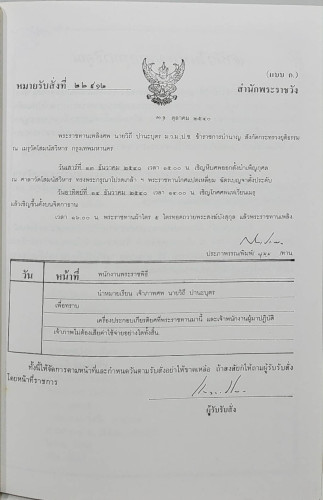 (แบบ ก.)
หมายรับสั่งที่ ๒๒๔๑๒
สำนักพระราชวัง
๓๑ ตุลาคม ๒๕๔๐
พระราชทานเพลิงศพ นายวิถี ปานะบุตร ม.ว.ม.,ป.ช. ข้าราชการบำนาญ สังกัดกระทรวงยุติธรรม
ณ เมรุวัดโสมนัสวิหาร กรุงเทพมหานคร
วันเสาร์ที่ ๑๓ ธันวาคม ๒๕๔๐ เวลา ๑๕.๐๐ น. เชิญหีบศพออกตั้งบำเพ็ญกุศล
ณ ศาลาวัดโสมนัสวิหาร ทรงพระกรุณาโปรดเกล้า ฯ พระราชทานโกศแปดเหลี่ยม ฉัตรเบญจาตั้งประดับ
วันอาทิตย์ที่ ๑๔ ธันวาคม ๒๕๔๐ เวลา ๑๔.๐๐ น. เชิญโกศศพเวียนเมรุ
แล้วเชิญขึ้นตั้งบนจิตกาธาน
เวลา ๑๖.๐๐ น. พระราชทานผ้าไตร ๕ ไตรทอดถวายพระสงฆ์บังสุกุล แล้วพระราชทานเพลิง
ประภาพรรณพิมพ์ /ทาน
วัน หน้าที่ พนักงานพระราชพิธี
นำหมายเรียน เจ้าภาพศพ นายวิถี ปานะบุตร
เพื่อทราบ
เครื่องประกอบเกียรติยศที่พระราชทานมานี้ และเจ้าพนักงานผู้มาปฏิบัติ
เจ้าภาพไม่ต้องเสียค่าใช้จ่ายอย่างใดทั้งสิ้น
ทั้งนี้ให้จัดการตามหน้าที่และกำหนดวันตามรับสั่งอย่าให้ขาดเหลือ ถ้าสงสัยก็ให้ถามผู้รับรับสั่ง
โดยหน้าที่ราชการ
ผู้รับรับสั่ง